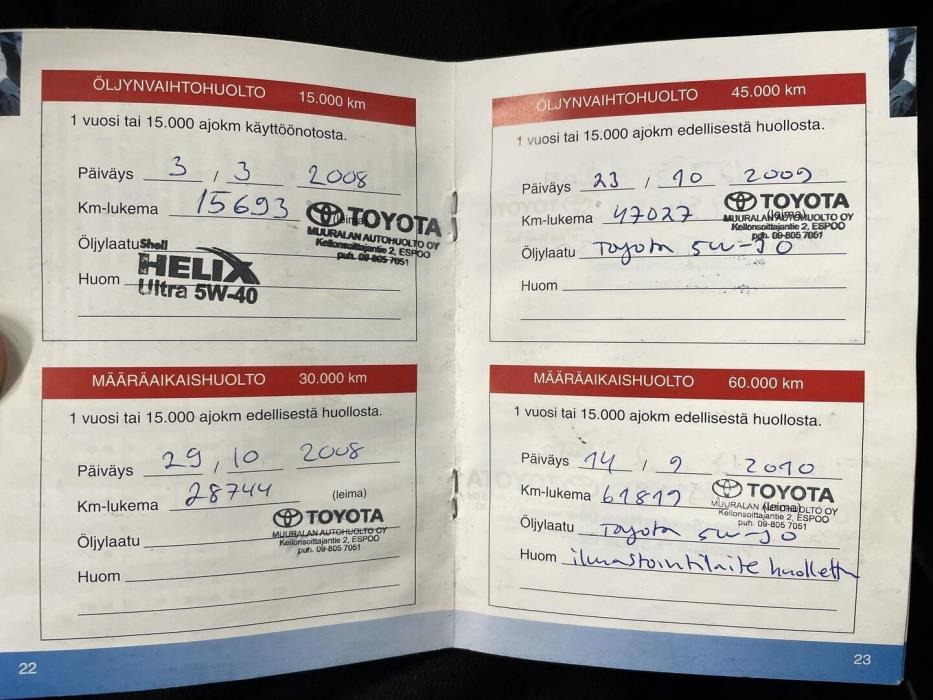 ÖLJYNVAIHTOHUOLTO 15.000 km
1 vuosi tai 15.000 ajokm käyttöönotosta.
Päiväys 3 / 3 2008
Km-lukema 15693 (leima)
TOYOTA
MUURALAN AUTOHUOLTO OY
Kellonsoittajantie 2, ESPOO
puh. 09-805 7051
Öljylaatu Shell
HELIX
Ultra 5W-40
Huom
MÄÄRÄAIKAISHUOLTO 30.000 km
1 vuosi tai 15.000 ajokm edellisestä huollosta.
Päiväys 29 / 10 2008
Km-lukema 28744 (leima)
TOYOTA
MUURALAN AUTOHUOLTO OY
Kellonsoittajantie 2, ESPOO
puh. 09-805 7051
Öljylaatu
Huom
22
ÖLJYNVAIHTOHUOLTO 45.000 km
1 vuosi tai 15.000 ajokm edellisestä huollosta.
Päiväys 23 / 10 2009
Km-lukema 47027 (leima)
TOYOTA
MUURALAN AUTOHUOLTO OY
Kellonsoittajantie 2, ESPOO
puh. 09-805 7051
Öljylaatu Toyota 5W-30
Huom
MÄÄRÄAIKAISHUOLTO 60.000 km
1 vuosi tai 15.000 ajokm edellisestä huollosta.
Päiväys 14 / 9 2010
Km-lukema 61819 (leima)
TOYOTA
MUURALAN AUTOHUOLTO OY
Kellonsoittajantie 2, ESPOO
puh. 09-805 7051
Öljylaatu Toyota 5W-30
Huom ilmastointilaite huollettu
23